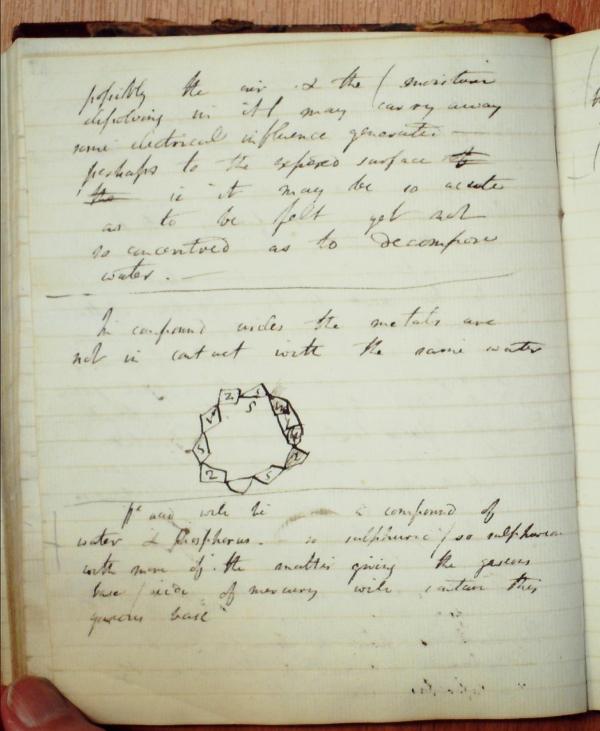 possibly the air & the ( moisture
dissolving in it ( may carry away
some electrical influence generated —
perhaps to the exposed surface
the is it may be so acute
as to be felt yet not
so concentred as to decompose
water. —
In compound circles the metals are
not in contact with the same water
2 S
S
S
2 S
2
Pc acid will be a compound of
water & Phosphorus. so sulphuric / so sulphureous
with more of the matter giving the gaseous
base / oxide of mercury will contain this
gaseous base